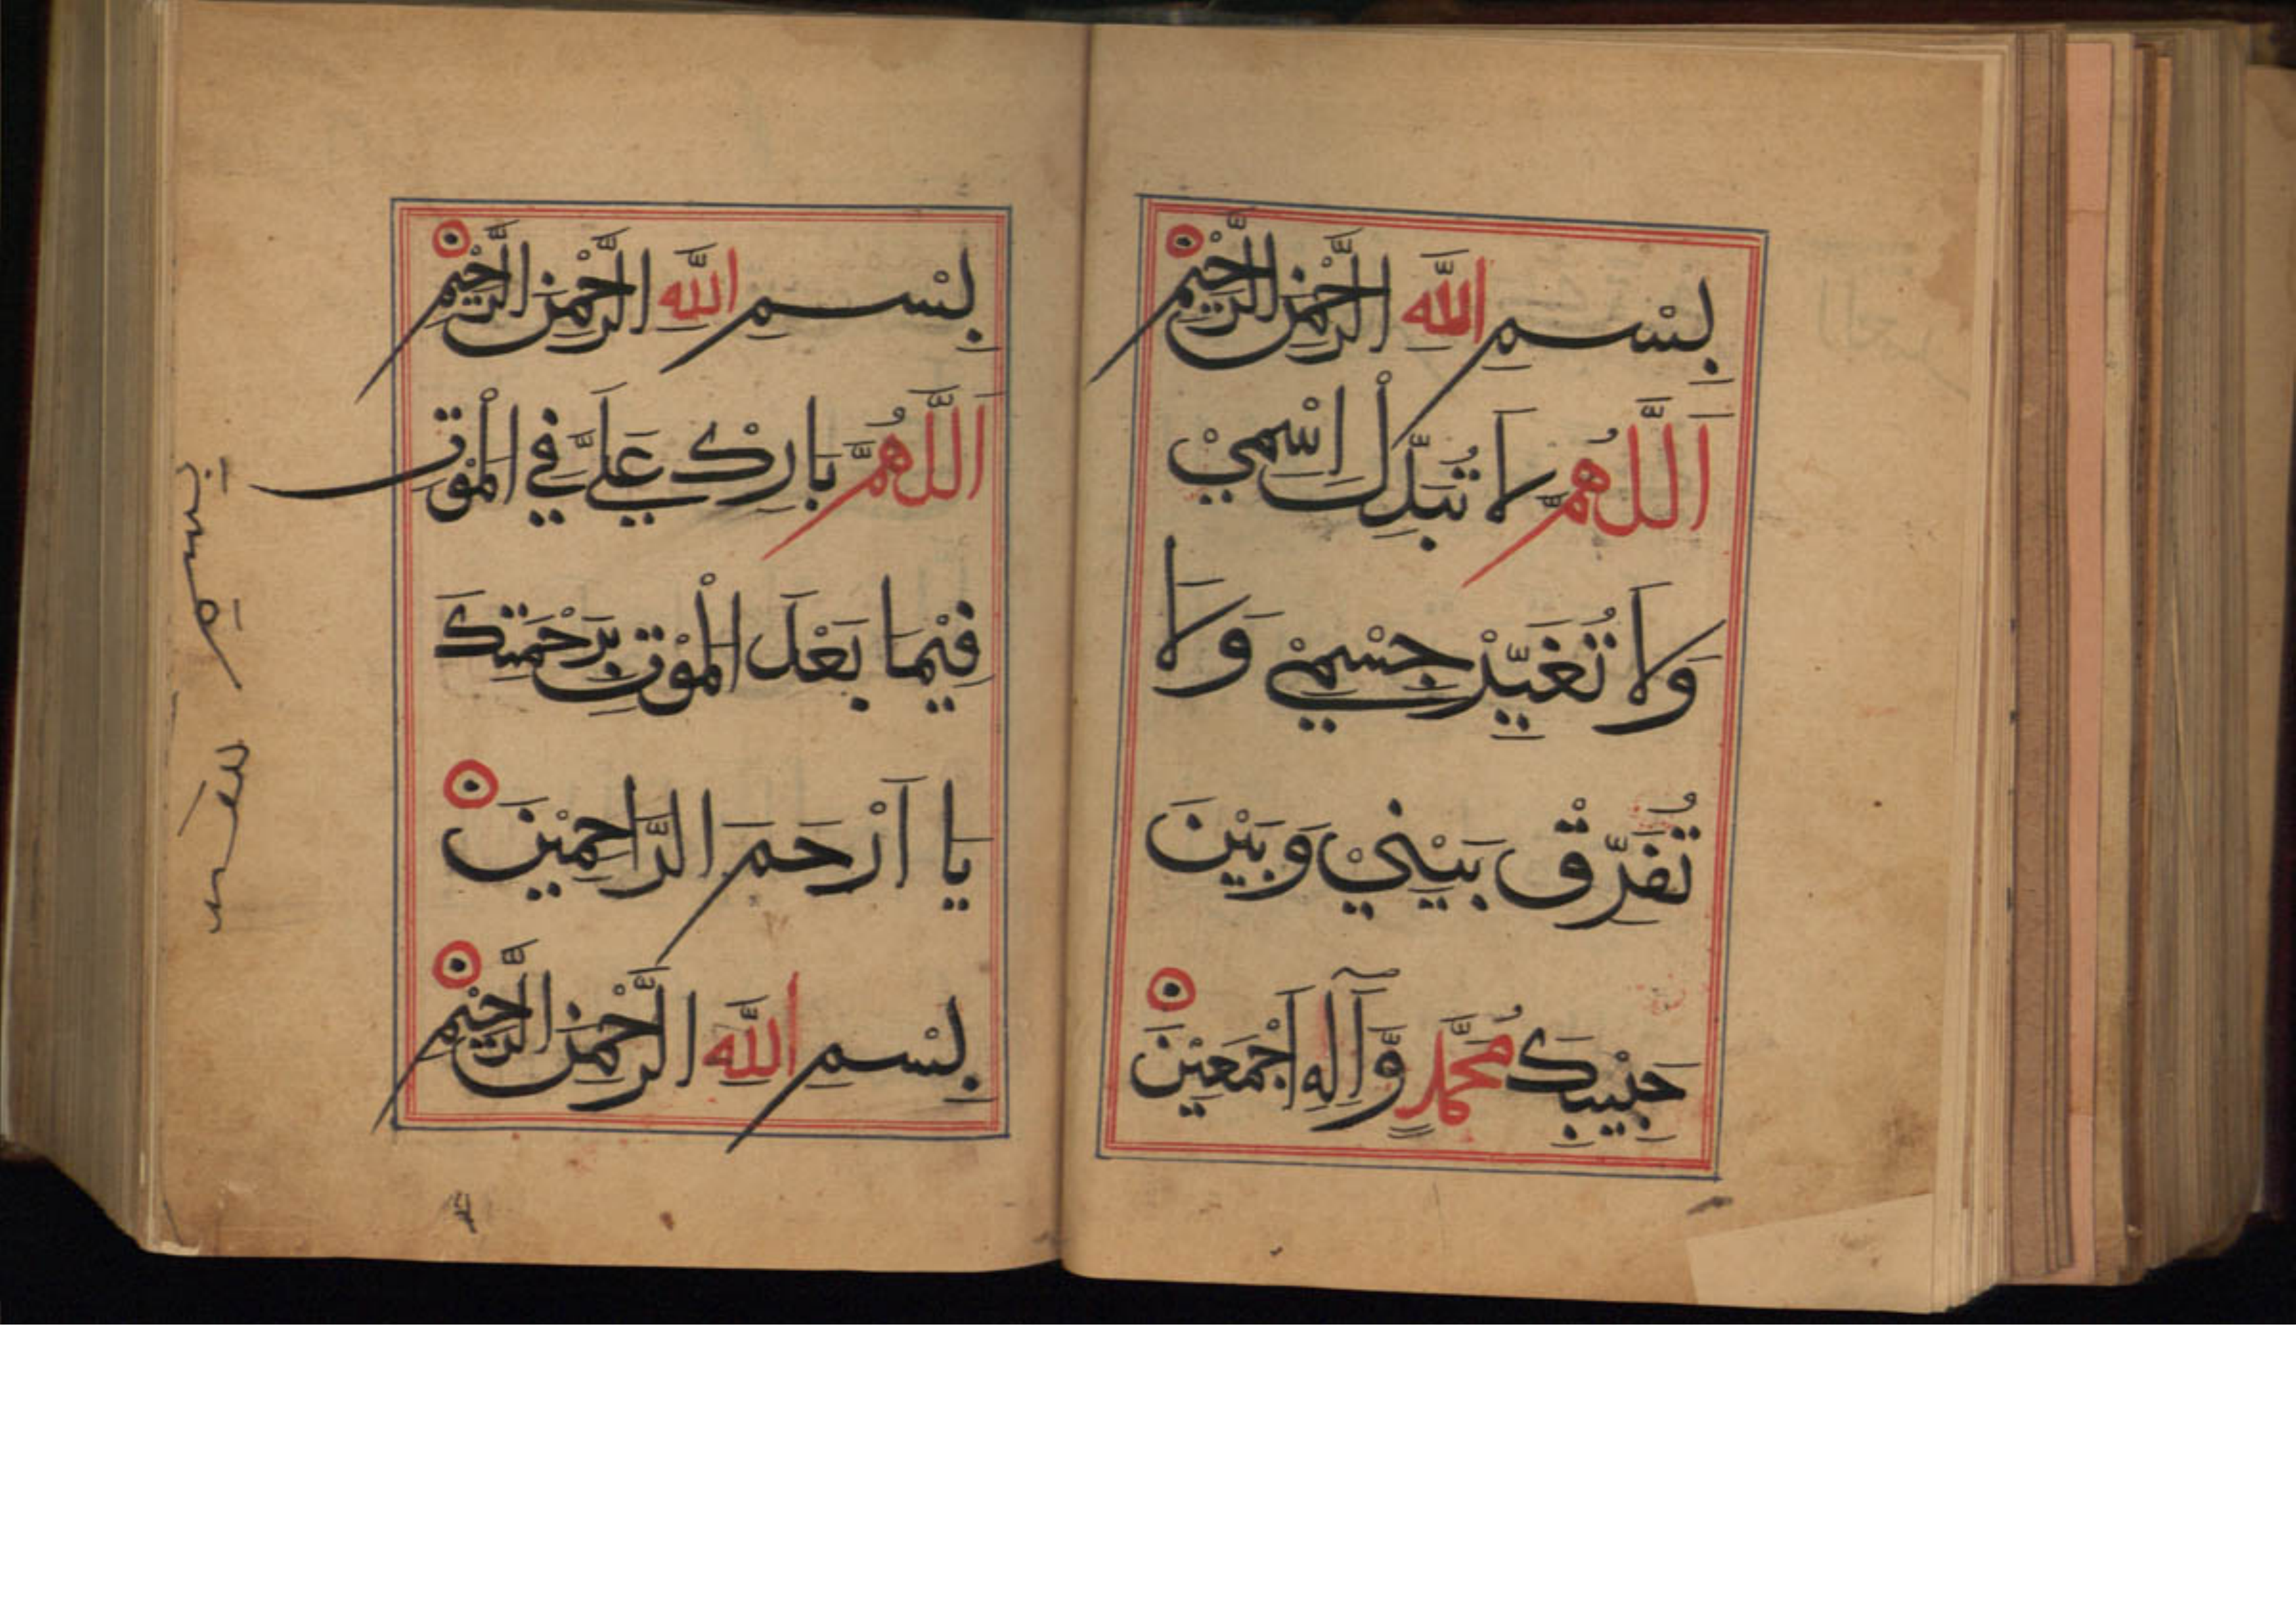 بِسْمِ اللَّهِ الرَّحْمٰنِ الرَّحِيْمِ
اَللَّهُمَّ لَا تُبَدِّلْ اِسْمِيْ
وَلَا تُغَيِّرْ جِسْمِيْ وَلَا
تُفَرِّقْ بَيْنِيْ وَبَيْنَ
حَبِيْبِكَ مُحَمَّدٍ وَّآلِهِ اَجْمَعِيْنَ
بِسْمِ اللَّهِ الرَّحْمٰنِ الرَّحِيْمِ
اَللَّهُمَّ بَارِكْ عَلَيَّ فِي الْمَوْتِ
فِيْمَا بَعْدَ الْمَوْتِ بِرَحْمَتِكَ
يَا اَرْحَمَ الرَّاحِمِيْنَ
بِسْمِ اللَّهِ الرَّحْمٰنِ الرَّحِيْمِ